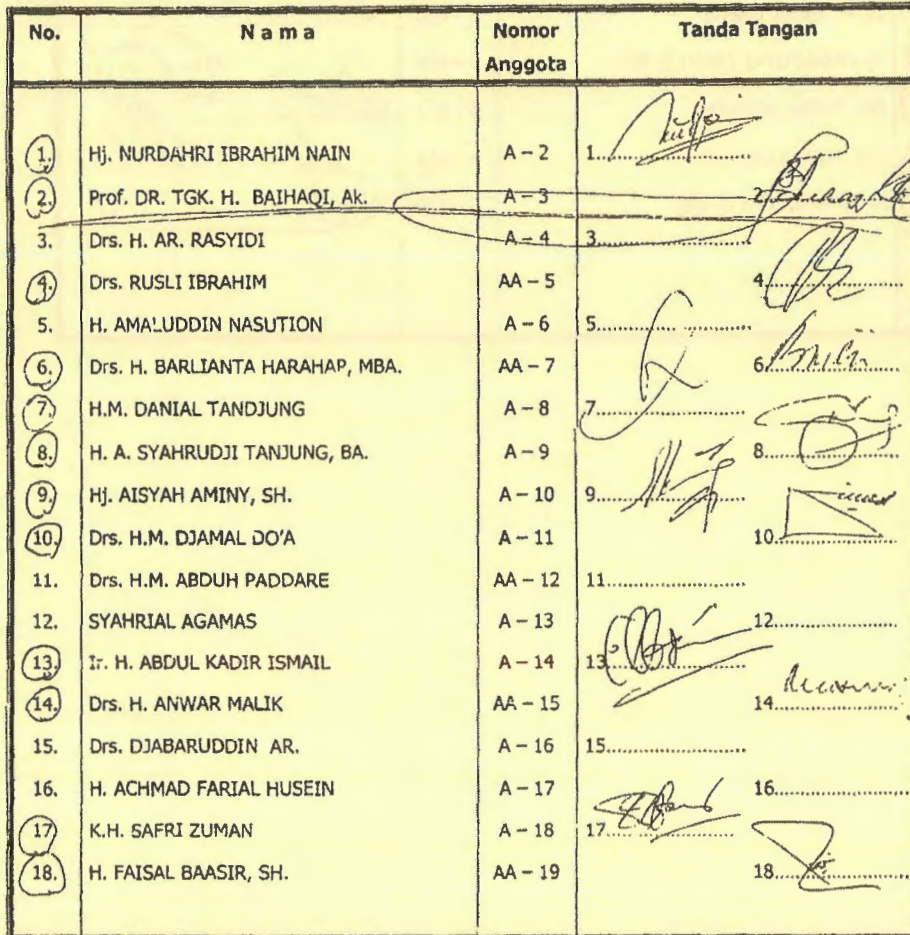 No. Nama Nomor Anggota Tanda Tangan
1. Hj. NURDAHRI IBRAHIM NAIN A – 2 1.
2. Prof. DR. TGK. H. BAIHAQI, Ak. A – 3 2
3. Drs. H. AR. RASYIDI A – 4 3
4. Drs. RUSLI IBRAHIM AA – 5 4
5. H. AMALUDDIN NASUTION A – 6 5
6. Drs. H. BARLIANTA HARAHAP, MBA. AA – 7 6
7. H.M. DANIAL TANDJUNG A – 8 7
8. H. A. SYAHRUDJI TANJUNG, BA. A – 9 8
9. Hj. AISYAH AMINY, SH. A – 10 9
10. Drs. H.M. DJAMAL DO'A A – 11 10
11. Drs. H.M. ABDUH PADDARE AA – 12 11
12. SYAHRIAL AGAMAS A – 13 12
13. Ir. H. ABDUL KADIR ISMAIL A – 14 13
14. Drs. H. ANWAR MALIK AA – 15 14
15. Drs. DJABARUDDIN AR. A – 16 15
16. H. ACHMAD FARIAL HUSEIN A – 17 16
17 K.H. SAFRI ZUMAN A – 18 17
18. H. FAISAL BAASIR, SH. AA – 19 18